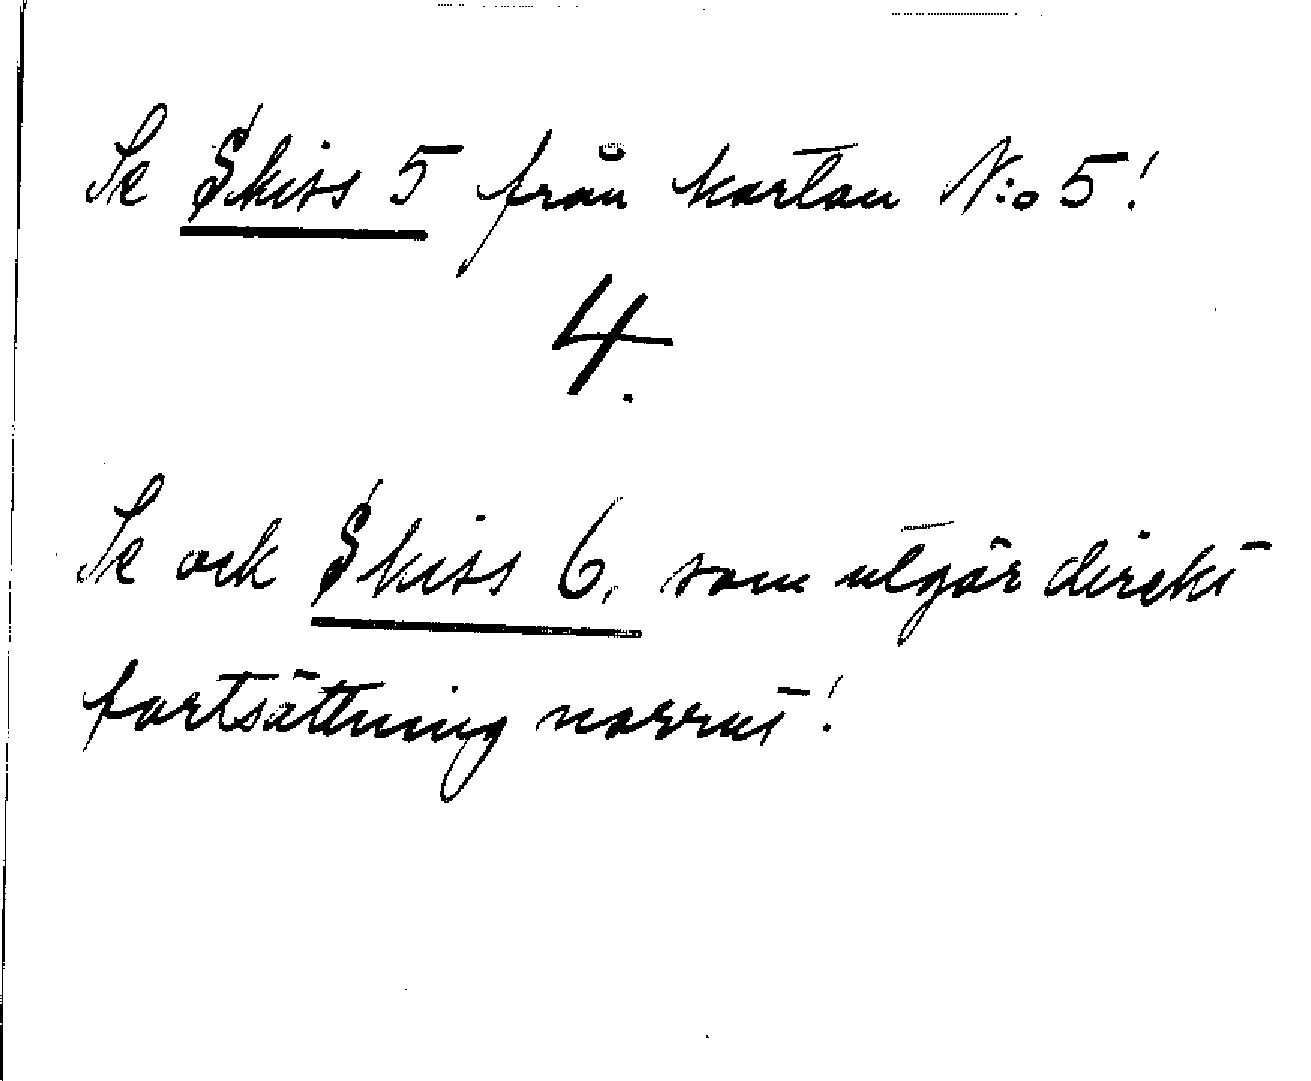 Se Skiss 5 från kartan N:o 5!
4.
Se ock Skiss 6, som utgör direkt
fortsättning norrut!